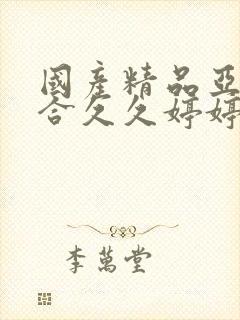 國產精品亞
合久久婷婷
李萬堂